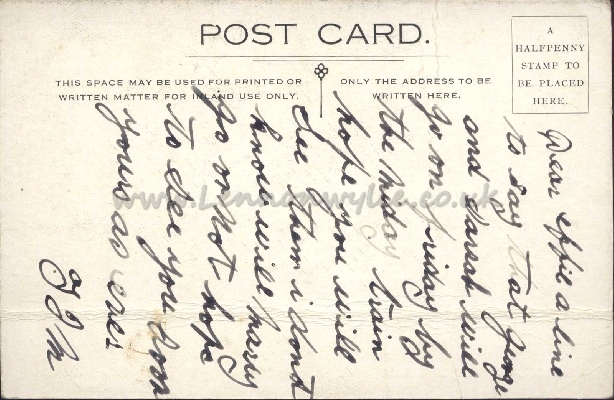 POST CARD.
THIS SPACE MAY BE USED FOR PRINTED OR
WRITTEN MATTER FOR INLAND USE ONLY.
ONLY THE ADDRESS TO BE
WRITTEN HERE.
A
HALFPENNY
STAMP TO
BE PLACED
HERE.
Dear effie a line
to say that
and Sarah will
go on friday by
the train
hope you will
See them i dont
know will harry
go or Not hope
to See you
yours as ever
www.Lennonwylie.co.uk